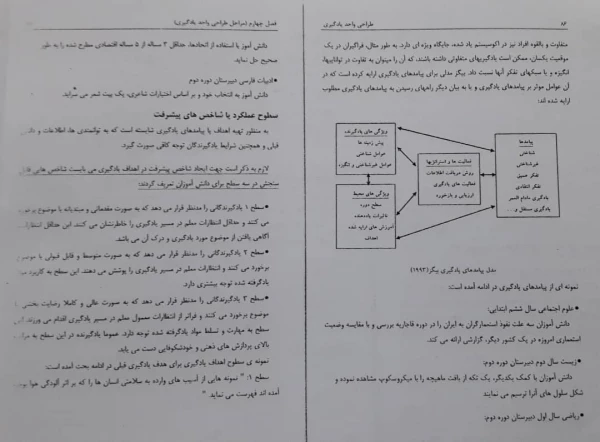 ۸۶
طراحی واحد یادگیری
متفاوت و بالقوه افراد نیز در اکوسیستم یاد شده، جایگاه ویژه ای دارد. به طور مثال، فراگیران در یک
موقعیت یکسان، ممکن است یادگیریهای متفاوتی داشته باشند، که آن را میتوان به تفاوت در تواناییها،
انگیزه و یا سبکهای تفکر آنها نسبت داد. بیگز مدلی برای پیامدهای یادگیری ارایه کرده است که در
آن عوامل موثر بر پیامدهای یادگیری و یا به بیان دیگر راههای رسیدن به پیامدهای یادگیری مطلوب
ارایه شده اند:
ویژگی های یادگیرنده
پیش زمینه ها
عوامل شناختی
عوامل غیرشناختی و انگیزه
ویژگی های محیط
سطح دوره
تاثیرات یاددهنده
آموزش های ارایه شده
اهداف
فعالیت ها و استراتژیها
روش دریافت اطلاعات
فعالیت های یادگیری
ارزیابی و بازخورد
پیامدها
شناختی
غیرشناختی
تفکر عمیق
تفکر انتقادی
یادگیری مادام العمر
یادگیری مستقل و ...
مدل پیامدهای یادگیری بیگز(۱۹۹۳)
نمونه ای از پیامدهای یادگیری در ادامه آمده است:
•علوم اجتماعی سال ششم ابتدایی:
دانش آموزان سه علت نفوذ استعمارگران به ایران را در دوره قاجاریه بررسی و با مقایسه وضعیت
استعماری امروزه در یک کشور دیگر، گزارشی ارائه می کند.
•زیست سال دوم دبیرستان دوره دوم:
دانش آموزان با کمک یکدیگر، یک تکه از بافت ماهیچه را با میکروسکوپ مشاهده نموده و
شکل سلول های آنرا ترسیم می نمایند
•ریاضی سال اول دبیرستان دوره دوم:
فصل چهارم (مراحل طراحی واحد یادگیری)
دانش آموز با استفاده از اتحادها، حداقل ۴ مساله از ۵ مساله اقتصادی مطرح شده را به طور
صحیح حل نماید.
•ادبیات فارسی دبیرستان دوره دوم
دانش آموز به انتخاب خود و بر اساس اختیارات شاعری، یک بیت شعر می سراید.
سطوح عملکرد یا شاخص های پیشرفت
به منظور تهیه اهداف یا پیامدهای یادگیری شایسته است که به توانمندی ها، اطلاعات و
قبلی و همچنین شرایط یادگیرندگان توجه کافی صورت گیرد.
لازم به ذکر است جهت ایجاد شاخص پیشرفت در اهداف یادگیری می بایست شاخص هایی
سنجش در سه سطح برای دانش آموزان تعریف کردند:
•سطح ۱ یادگیرندگانی را مدنظر قرار می دهد که به صورت مقدماتی و مبتدیانه با موضوع برخورد
می کنند و حداقل انتظارات معلم در مسیر یادگیری را خاطرنشان می کنند. این حداقل انتظارات
آگاهی یافتن از موضوع مورد یادگیری و درک آن می باشد.
•سطح ۲ یادگیرندگانی را مدنظر قرار می دهد که به صورت متوسط و قابل قبولی با موضوع
برخورد می کنند و انتظارات معلم در مسیر یادگیری را پوشش می دهند. این سطح به کاربرد
یادگرفته شده توجه بیشتری دارد.
•سطح ۳ یادگیرندگانی را مدنظر قرار می دهد که به صورت عالی و کاملا رضایت بخشی با
موضوع برخورد می کنند و فراتر از انتظارات معمول معلم در مسیر یادگیری اقدام می ورزند.
سطح به مهارت و تسلط مواد یادگرفته شده توجه دارد. عموما یادگیرنده در این سطح به
بالای پردازش های ذهنی و خودشکوفایی دست می یابد.
نمونه ی سطوح اهداف یادگیری برای هدف یادگیری قبلی در ادامه بحث آمده است:
سطح ۱: " نمونه هایی از آسیب های وارده به سلامتی انسان ها را که بر اثر آلودگی هوا بوجود
آمده اند فهرست می نماید "